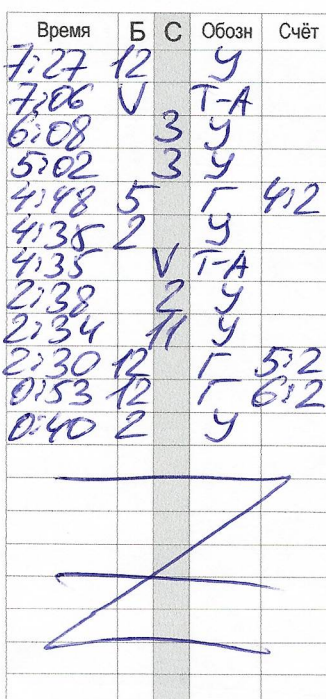 Время Б С Обозн Счёт
7:27 12 У
7:06 V Т-А
6:08 3 У
5:02 3 У
4:48 5 Г 4:2
4:35 2 У
4:35 V Т-А
2:38 2 У
2:34 11 У
2:30 12 Г 5:2
0:53 12 Г 6:2
0:40 2 У